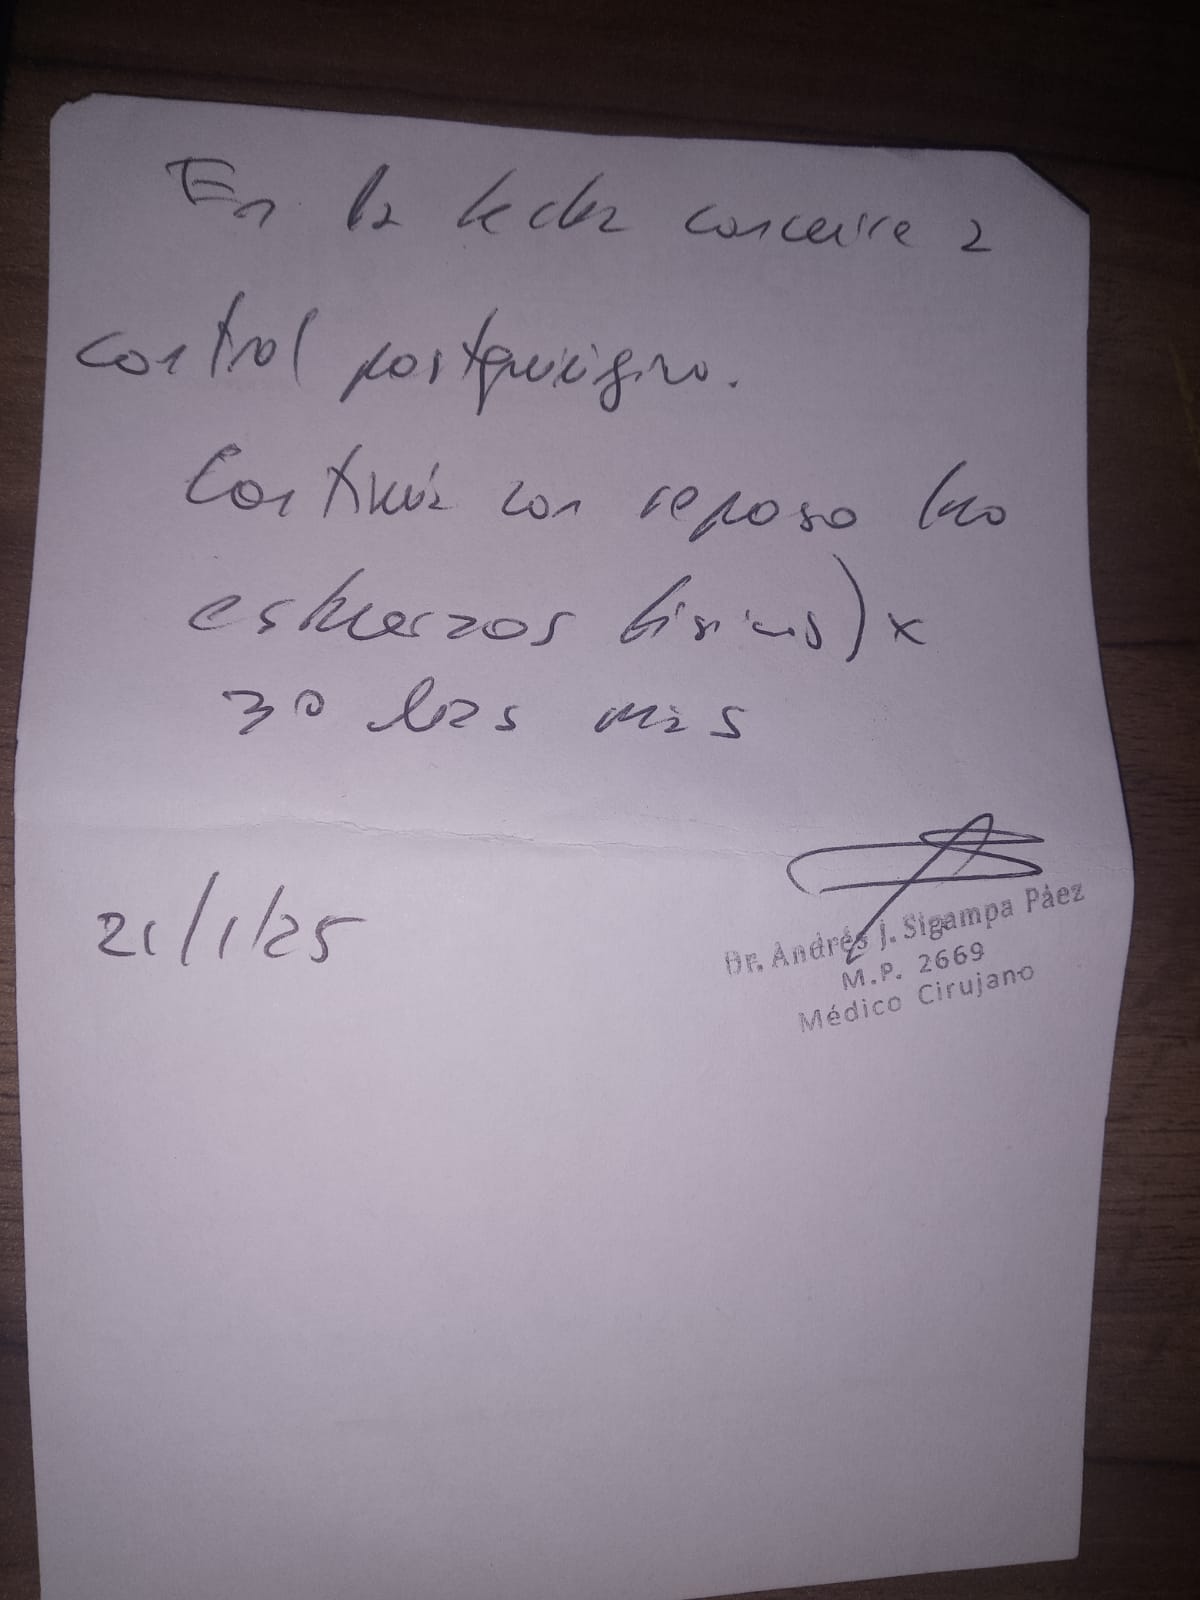 En la fecha concurre a
control postquirúrgico.
Continúa con reposo (no
esfuerzos físicos) x
30 días más
21/1/25
Dr. Andrés J. Sigampa Páez
M.P. 2669
Médico Cirujano